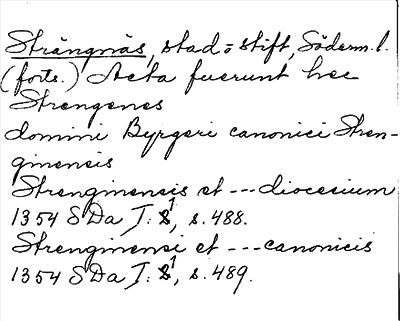 Strängnäs, stad o. stift, Söderm. l.
(forts.) Acta fuerunt hec
Strengenes
domini Byrgeri canonici Stren-
ginensis
Strenginensis et --- diocesium
1354 SDa I: 1, s. 488.
Strenginensi et --- canonicis
1354 SDa I: 1, s. 489.